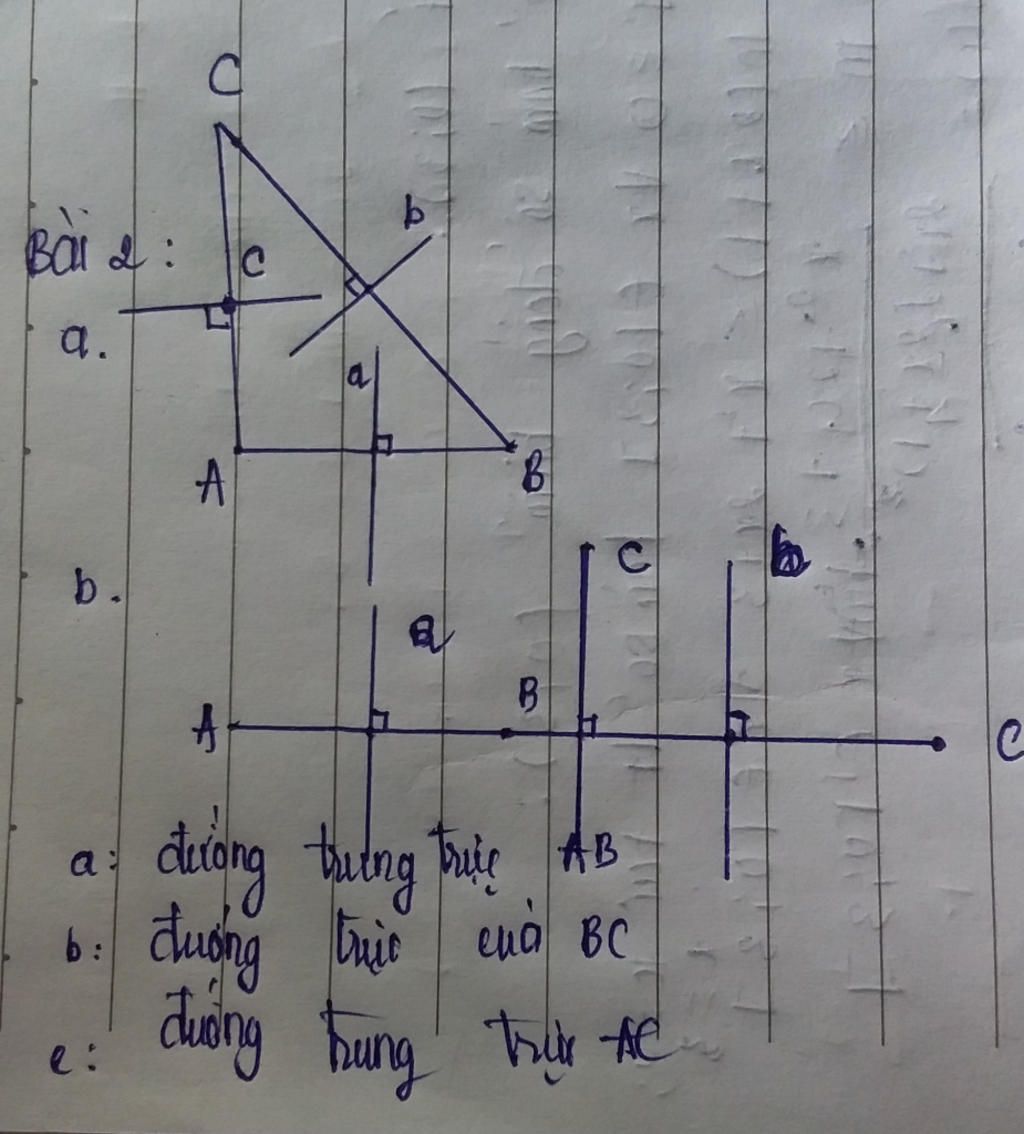 C
b
Bài 2: C
a.
a
A B
b. C b
a
B
A C
a: đường trung trực AB
b: đường trực của BC
c: đường trung trực AC